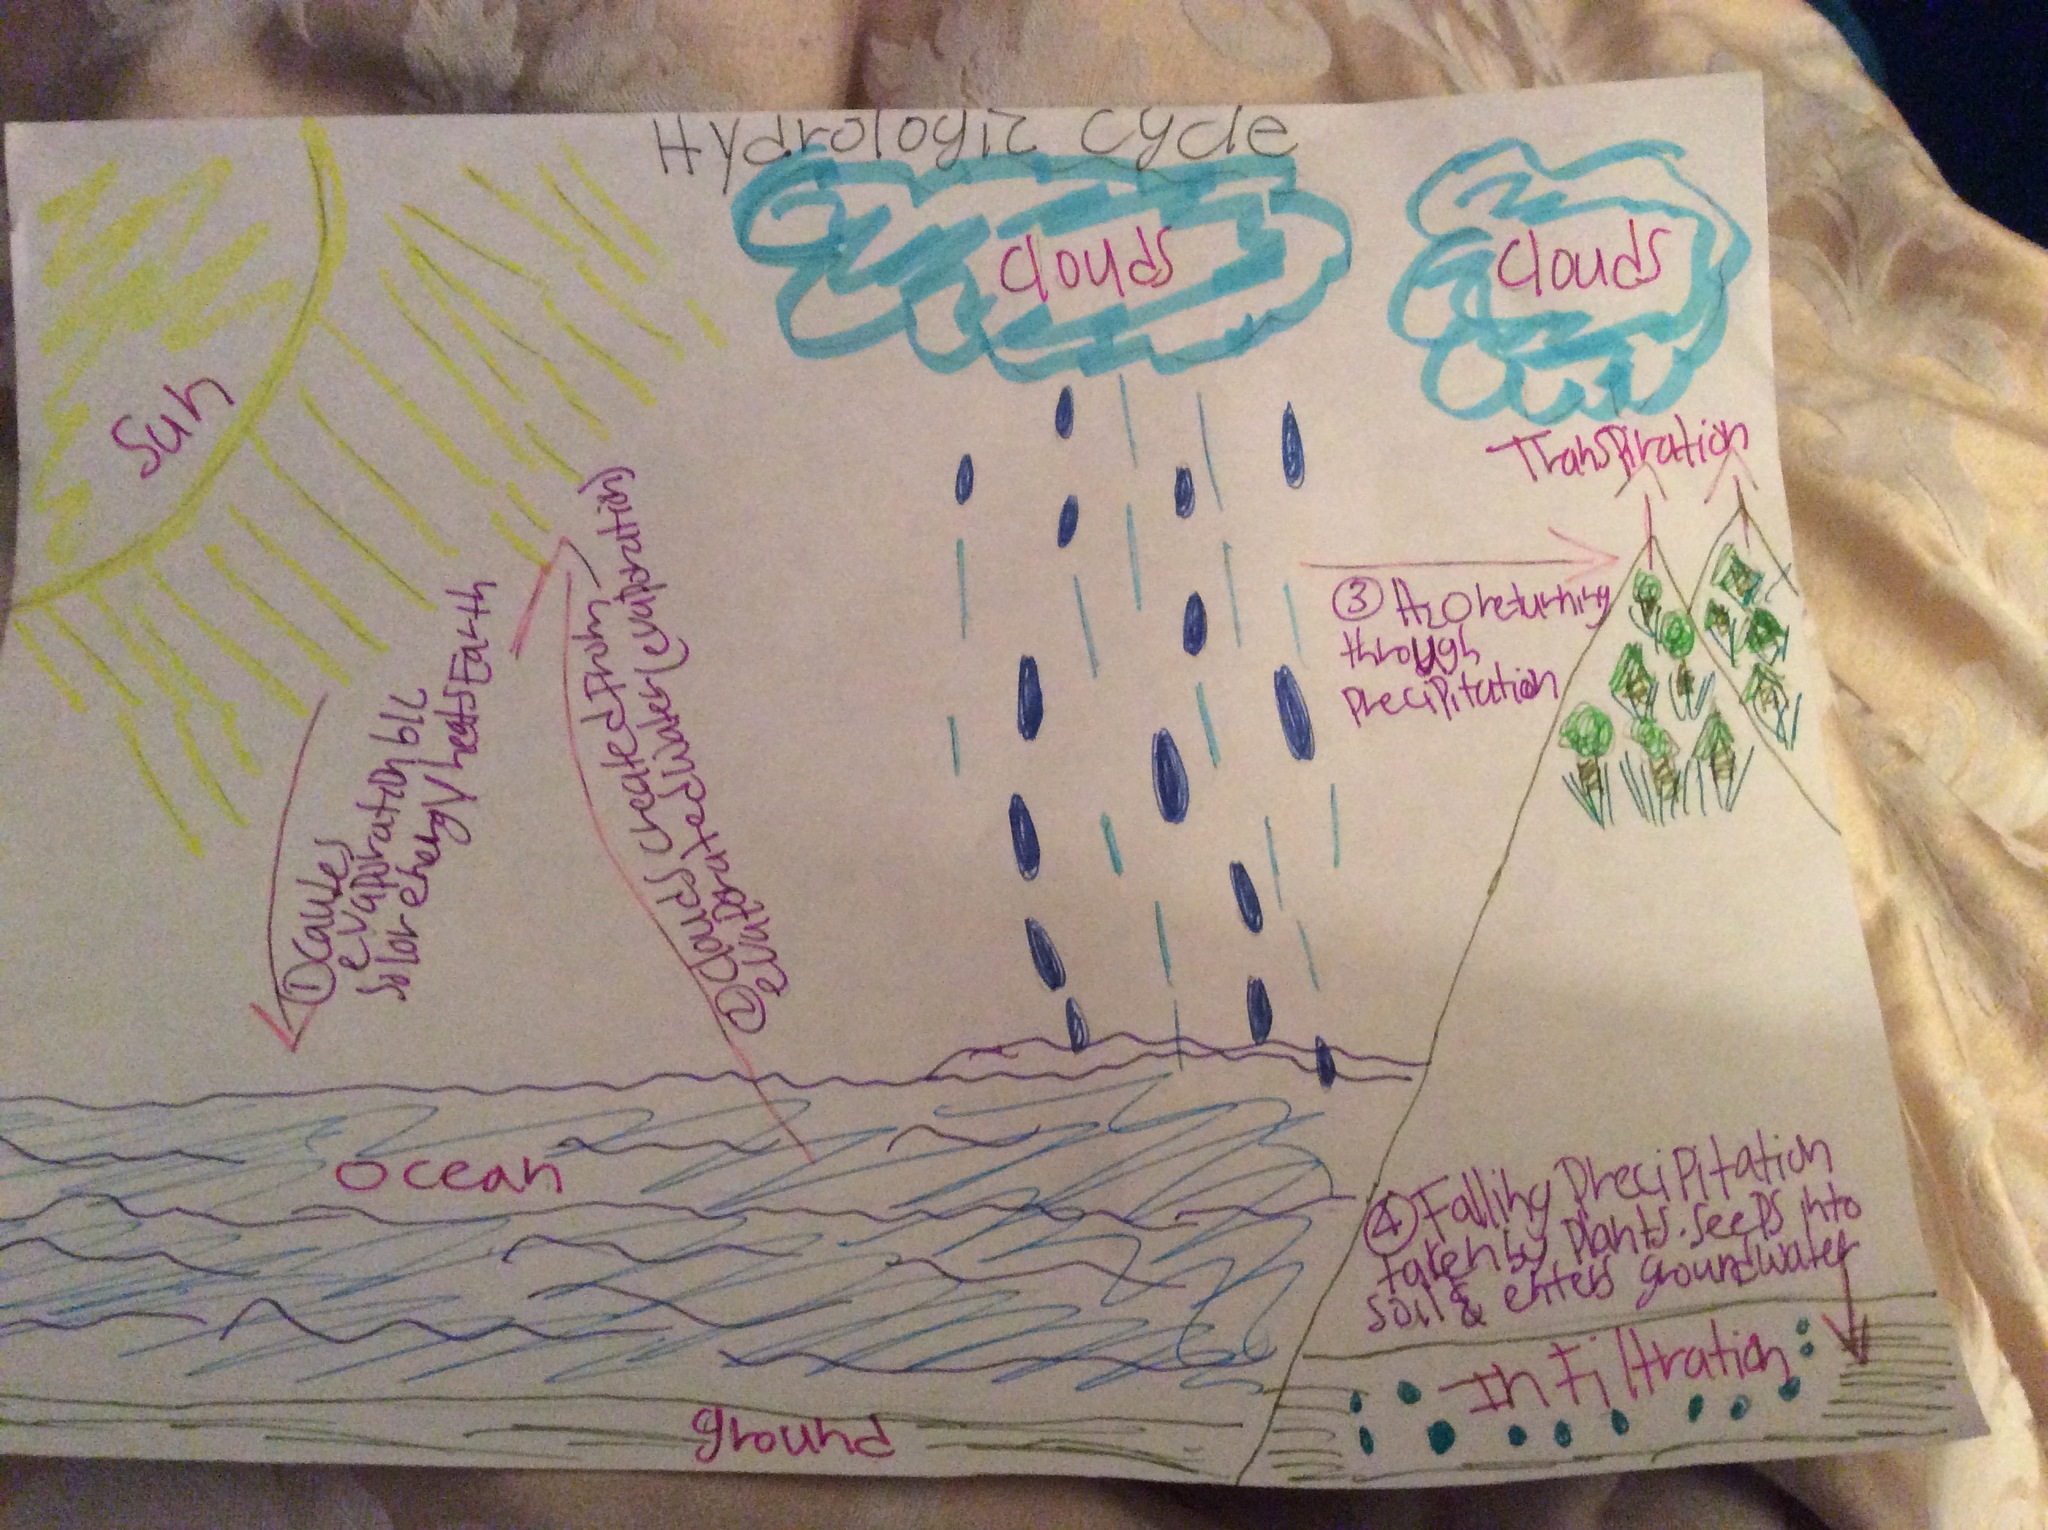 Hydrologic Cycle
Sun
Clouds
Clouds
Transpiration
① Causes
evaporation b/c
solor energy heats Earth
② Clouds created from
evatporated water (evatporation)
③ H2O returning
through
precipitation
Ocean
④ Falling precipitation
taken by plants. Seeps into
soil & enters groundwater
Infiltration
ground